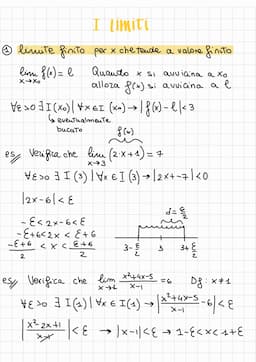 I LIMITI
① limite finito per x che tende a valore finito
lim f(x) = l Quando x si avvicina a x₀
x→x₀ allora f(x) si avvicina a l
∀ε>0 ∃ I(x₀) | ∀x∈I(x₀) → |f(x)-l|<ε
↳ eventualmente
bucato
f(x)
es Verifica che lim (2x+1) = 7
x→3
∀ε>0 ∃ I(3) | ∀x∈I(3) → |2x+1-7|<0
|2x-6|<ε
-ε<2x-6<ε
-ε+6<2x<ε+6
-ε+6/2 < x < ε+6/2
d=ε/2
3-ε/2 3 3+ε/2
es Verifica che lim x²+4x-5/x-1 =6 Df: x≠1
x→1
∀ε>0 ∃ I(1) | ∀x∈I(1) → |x²+4x-5/x-1 -6|<ε
|x²-2x+1/x-1|<ε → |x-1|<ε → 1-ε<x<1+ε